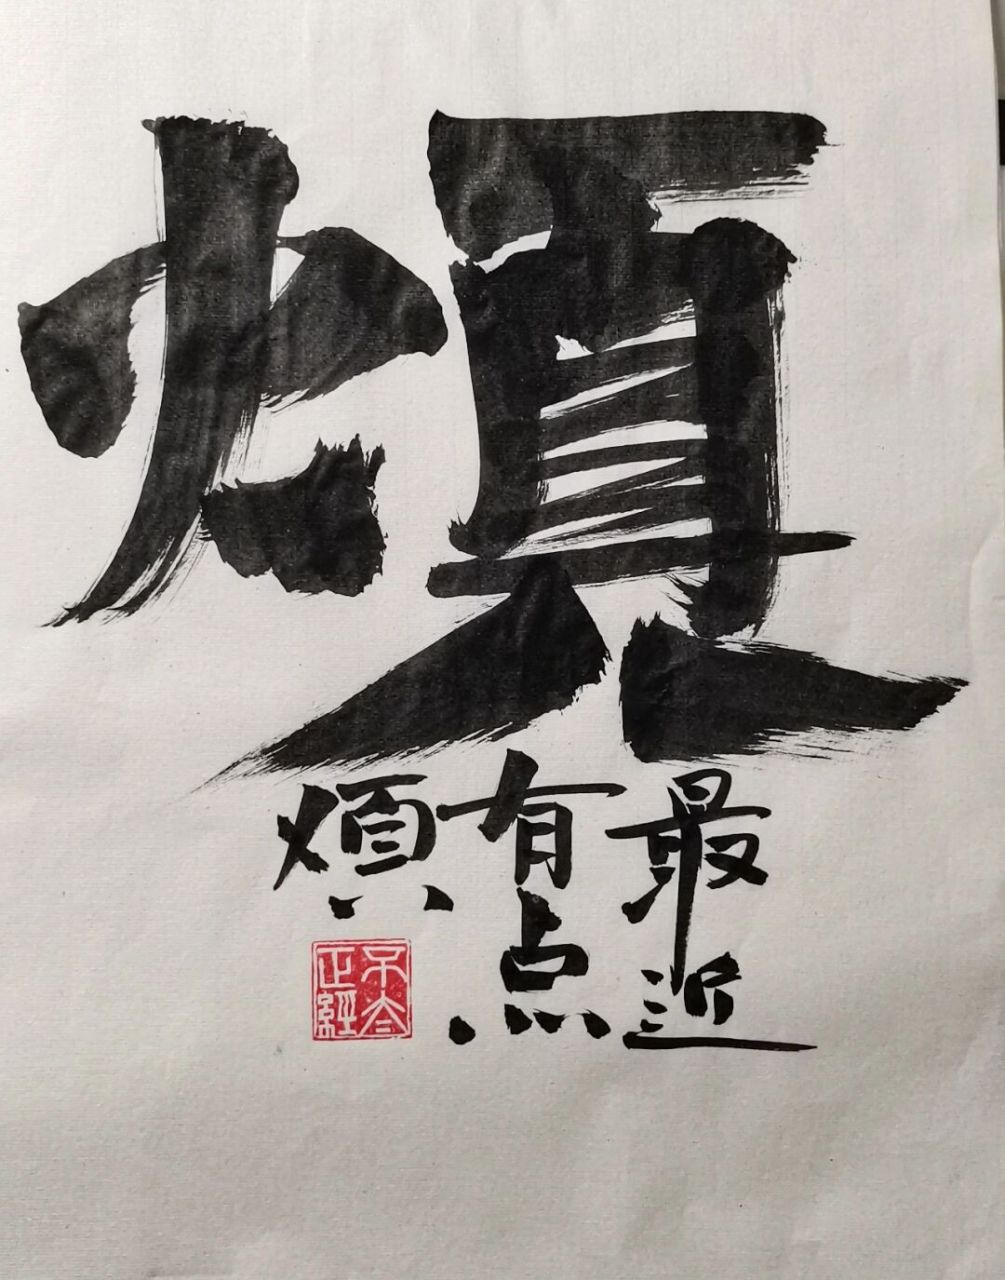 煩
最近
有点
煩
不太
正經